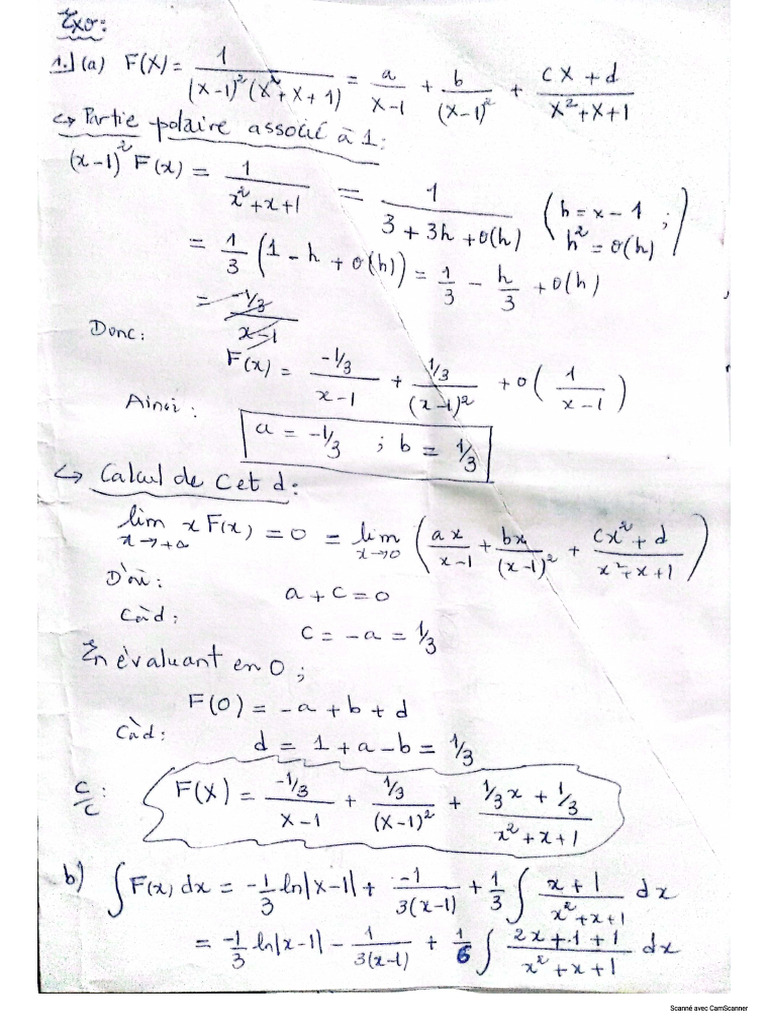 Exo:
1.] (a) F(X) = 1/((X-1)²(X²+X+1)) = a/(X-1) + b/(X-1)² + (cX+d)/(X²+X+1)
↪ Partie polaire associé à 1:
(x-1)² F(x) = 1/(x²+x+1) = 1/(3+3h+o(h)) (h = x-1 ; h² = o(h))
= 1/3 (1 - h + o(h)) = 1/3 - h/3 + o(h)
= (-1/3)/(x-1)
Donc:
F(x) = (-1/3)/(x-1) + (1/3)/(x-1)² + o(1/(x-1))
Ainsi:
a = -1/3 ; b = 1/3
↪ Calcul de c et d:
lim x→+∞ x F(x) = 0 = lim x→0 (ax/(x-1) + bx/(x-1)² + (cx²+d)/(x²+x+1))
D'où:
a + c = 0
Càd:
c = -a = 1/3
En èvaluant en 0 ;
F(0) = -a + b + d
Càd:
d = 1 + a - b = 1/3
C/C:
F(X) = (-1/3)/(X-1) + (1/3)/(X-1)² + (1/3 x + 1/3)/(x²+x+1)
b) ∫ F(x) dx = -1/3 ln|x-1| + (-1)/(3(x-1)) + 1/3 ∫ (x+1)/(x²+x+1) dx
= -1/3 ln|x-1| - 1/(3(x-1)) + 1/6 ∫ (2x+1+1)/(x²+x+1) dx
Scanné avec CamScanner